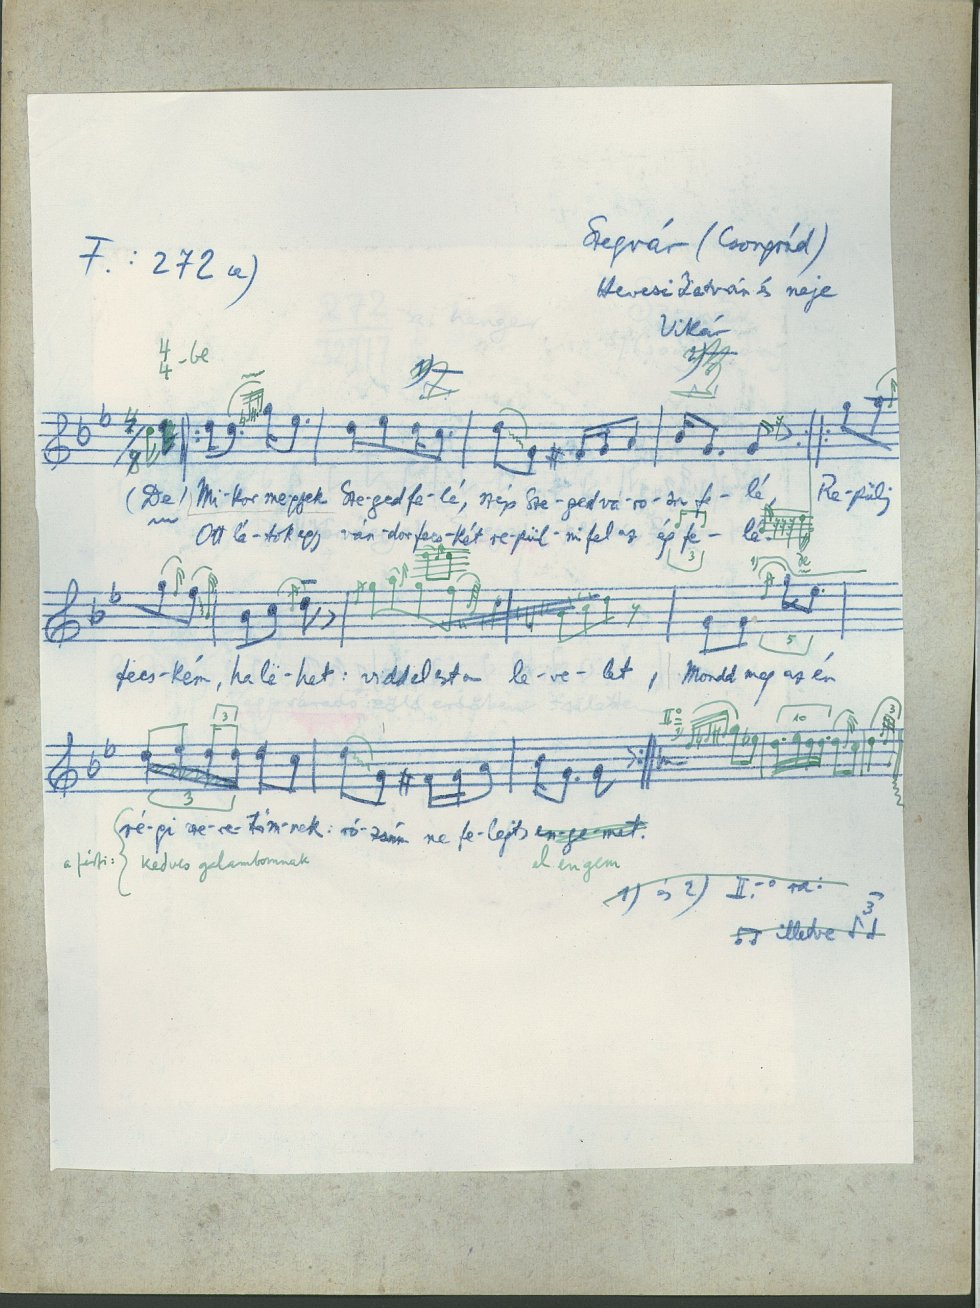 F.: 272 a)
Szegvár (Csongrád)
Hevesi István és neje
Vikár
4/4-be
1) 2)
4/8
(De) Mi-kor megyek Sze-ged fe-lé, szép Sze-ged vá-ro-sa fe-lé, Re-pülj
Ott lá-tok egy ván-dor fecs-két re-pül-ni fel az ég fe-lé.
3
1) de
3
5
fecs-kém, ha lë-het: viddel ezt a le-ve-let, Mondd meg az én
3
II.
10
3
3
ré-gi sze-re-tőm-nek: ró-zsám ne fe-lejts en-ge-met.
a férfi: kedves galambomnak el engem
1) és 2) II.-o ra:
illetve
3